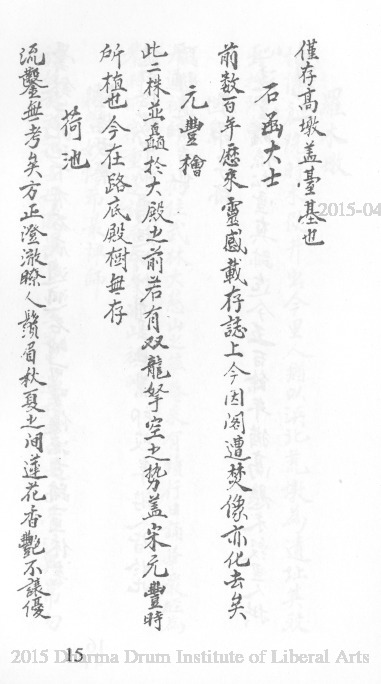 僅存高墩蓋臺基也
石函大士
前数百年歷來靈感載存誌上今因閣遭焚像亦化去矣
元豐檜
此二株並矗於大殿之前若有双龍拏空之势蓋宋元豐時
所植也今在路底殿樹無存
荷池
流鑿無考矣方正澄澈瞭人鬚眉秋夏之间蓮花香艷不讓優
15
2015-04
2015 Dharma Drum Institute of Liberal Arts